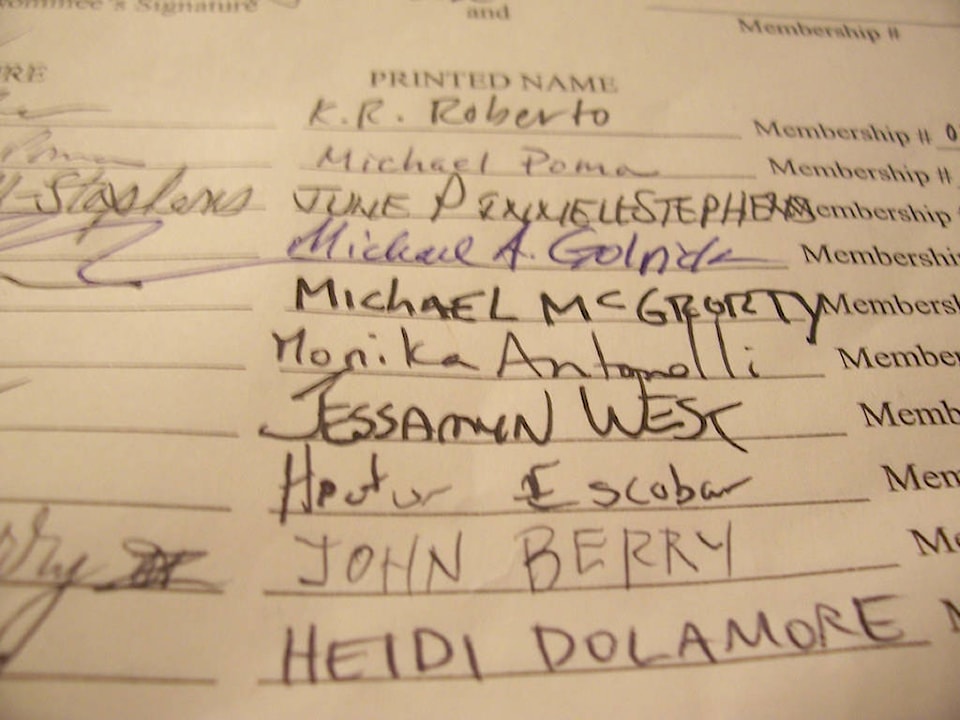 ominee's Signature and Membership #
RE PRINTED NAME
K.R. Roberto Membership # 0
Poma Michael Poma Membership #
-Stephens JUNE PINNELL-STEPHENS Membership
Michael A. Golrick Membershi
MICHAEL MCGRORTY Members
Monika Antonelli Member
JESSAMYN WEST Memb
Hector Escobar Mem
rry JOHN BERRY Me
HEIDI DOLAMORE M